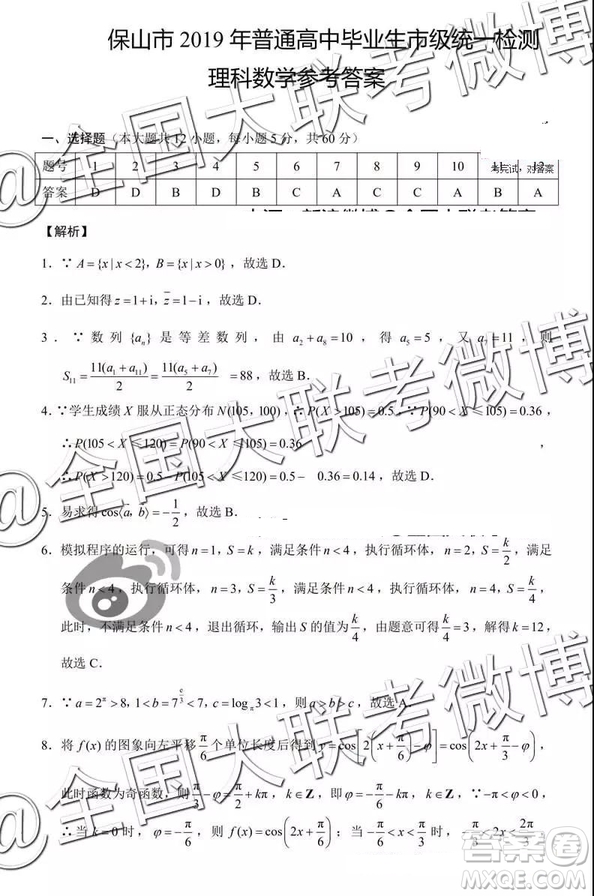 保山市 2019 年普通高中毕业生市级统一检测
理科数学参考答案
一、选择题（本大题共 12 小题，每小题 5 分，共 60 分）
题号 1 2 3 4 5 6 7 8 9 10 12
答案 D D B D B C A C C A B A
【解析】
1．∵ A={x|x<2}，B={x|x>0}，故选 D．
2．由已知得 z=1+i，z̅=1−i，故选 D．
3．∵数列{aₙ}是等差数列，由 a₂+a₈=10，得 a₅=5，又 a₇=11，则
S₁₁ = 11(a₁+a₁₁)/2 = 11(a₅+a₇)/2 =88，故选 B．
4．∵学生成绩 X 服从正态分布 N(105，100)，∴P(X>105)=0.5，∵P(90<X≤105)=0.36，
∴P(105<X≤120)=P(90<X≤105)=0.36，
∴P(X>120)=0.5−P(105<X≤120)=0.5−0.36=0.14，故选 D．
5．易求得 cos⟨a，b⟩=−1/2，故选 B．
6．模拟程序的运行，可得 n=1，S=k，满足条件 n<4，执行循环体，n=2，S=k/2，满足
条件 n<4，执行循环体，n=3，S=k/3，满足条件 n<4，执行循环体，n=4，S=k/4，
此时，不满足条件 n<4，退出循环，输出 S 的值为 k/4，由题意可得 k/4=3，解得 k=12，
故选 C．
7．∵a=2^π>8，1<b=7^(e/3)<7，c=log_π3<1，则 a>b>c，故选 A．
8．将 f(x) 的图象向左平移 π/6 个单位长度后得到 y=cos[2(x+π/6)−φ]=cos(2x+π/3−φ)，
此时函数为奇函数，则 π/3−φ=π/2+kπ，k∈Z，即 φ=−π/6−kπ，k∈Z．∵−π<φ<0，
∴当 k=0 时，φ=−π/6，则 f(x)=cos(2x+π/6)；当 −π/6<x<π/3 时，−π/6<2x+π/6<
@全国大联考微博
@全国大联考微博
@全国大联考微博
答案圈
MXQE.COM